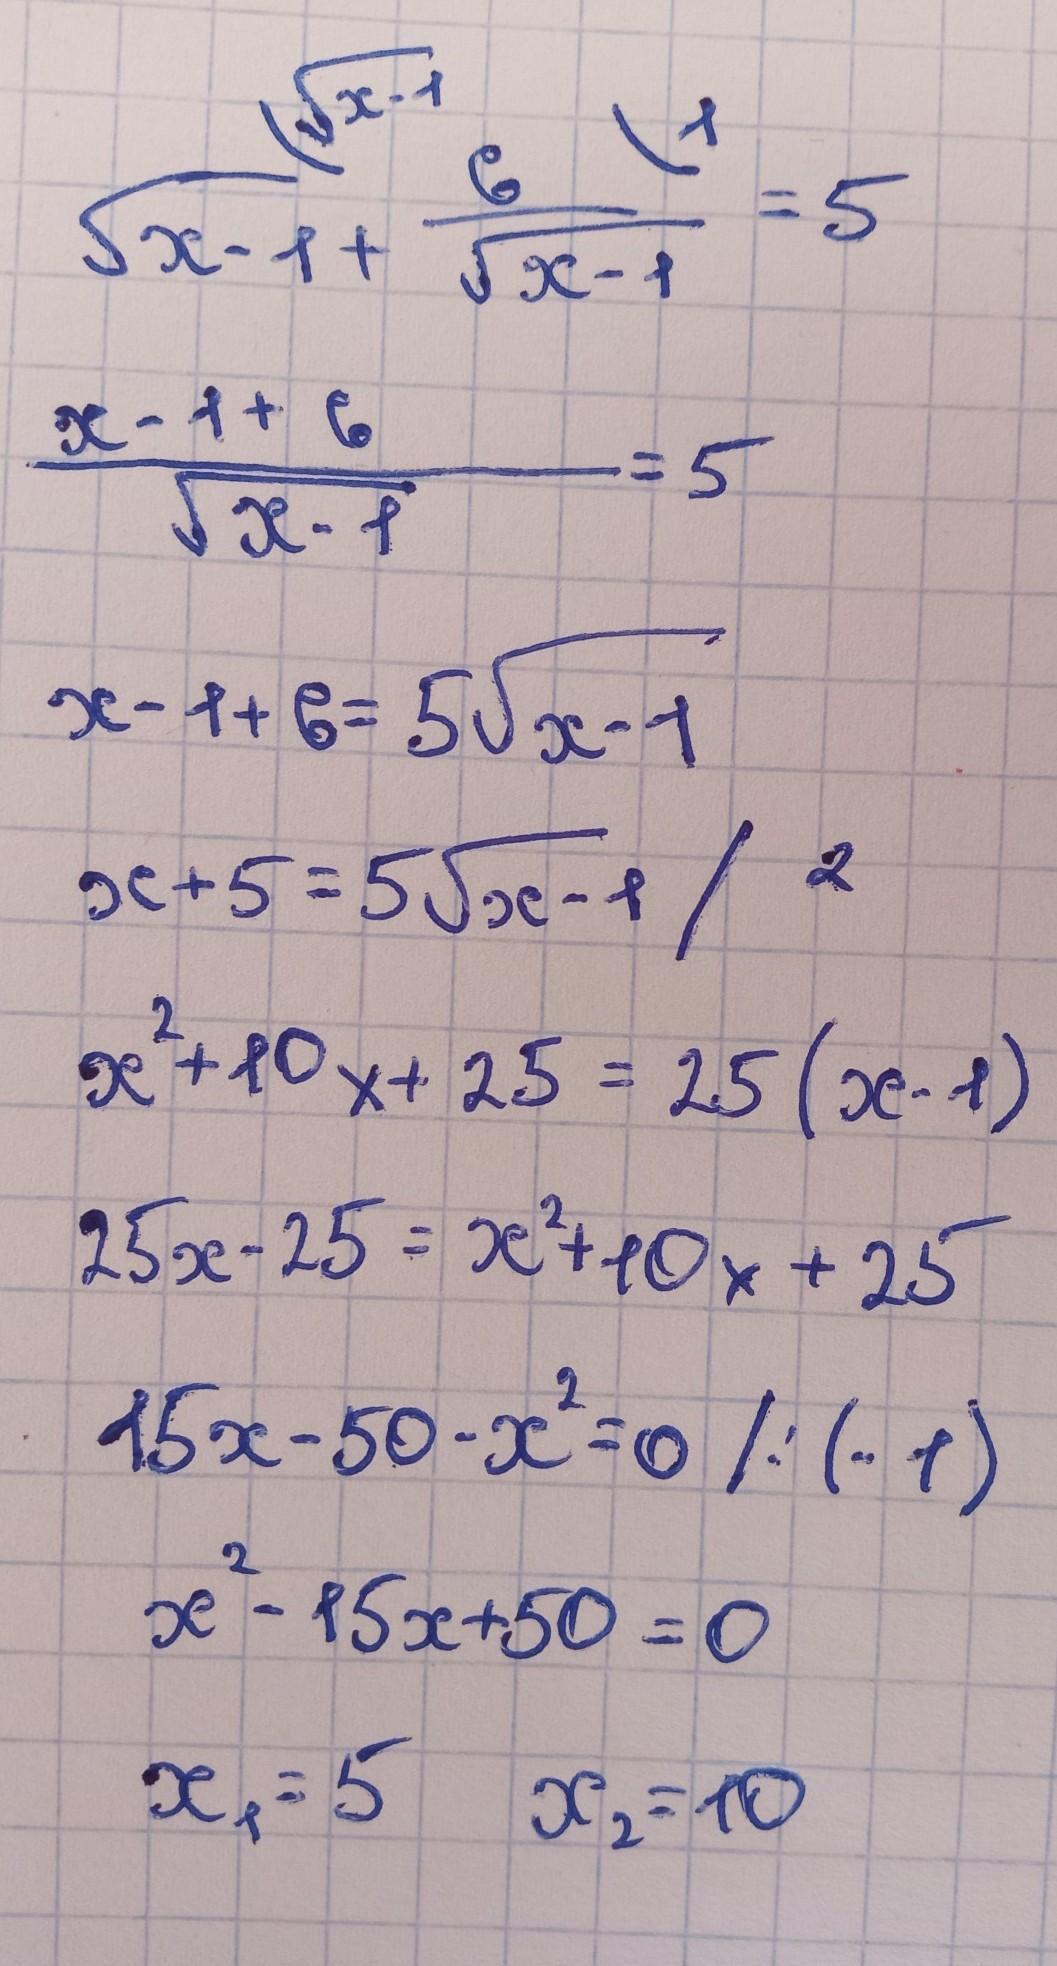 √x-1 1
√x-1 + 6/√x-1 = 5
x-1+6/√x-1 = 5
x-1+6=5√x-1
x+5=5√x-1 / 2
x²+10x+25=25(x-1)
25x-25=x²+10x+25
15x-50-x²=0 /:(-1)
x²-15x+50=0
x₁=5 x₂=10